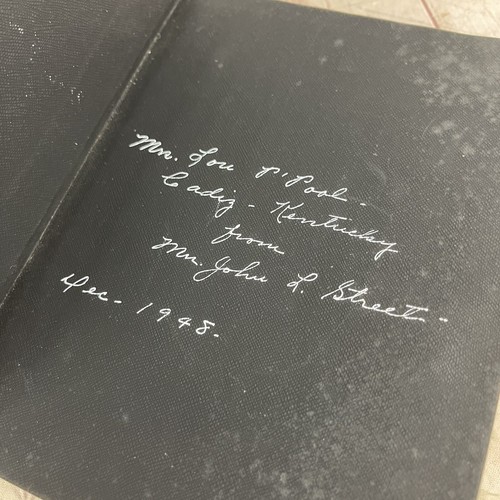 Mr. Lou P'Pool -
Cadiz - Kentucky
from
Mr. John L. Street - -
Dec - 1948.